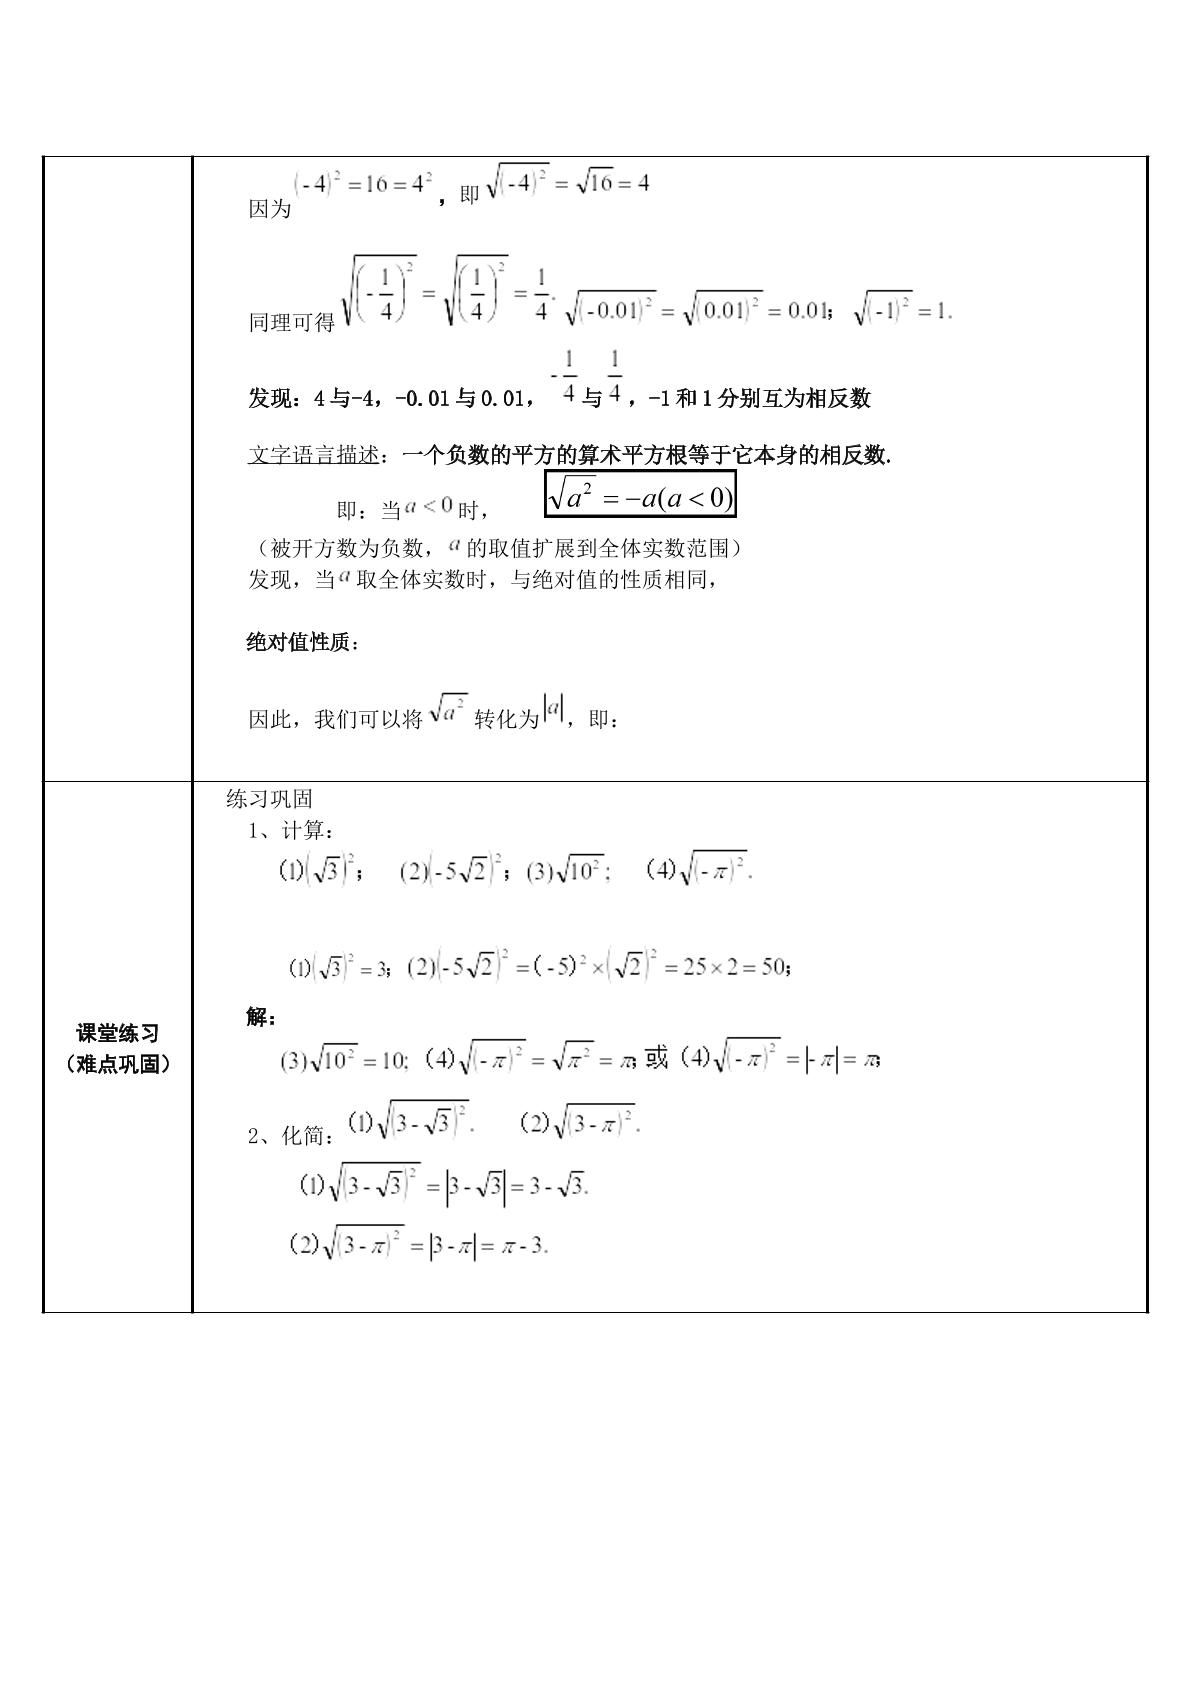 因为(-4)²=16=4²，即√(-4)²=√16=4
同理可得√(-1/4)²=√(1/4)²=1/4. √(-0.01)²=√(0.01)²=0.01; √(-1)²=1.
发现：4与-4，-0.01与0.01， -1/4与1/4，-1和1分别互为相反数
文字语言描述：一个负数的平方的算术平方根等于它本身的相反数.
即：当a<0时， √a²=-a(a<0)
（被开方数为负数，a的取值扩展到全体实数范围）
发现，当a取全体实数时，与绝对值的性质相同，
绝对值性质：
因此，我们可以将√a²转化为|a|，即：
练习巩固
1、计算：
(1)(√3)²; (2)(-5√2)²; (3)√10²; (4)√(-π)².
(1)(√3)²=3; (2)(-5√2)²=(-5)²×(√2)²=25×2=50;
解：
(3)√10²=10; (4)√(-π)²=√π²=π;或(4)√(-π)²=|-π|=π;
课堂练习
（难点巩固）
2、化简：(1)√(3-√3)². (2)√(3-π)².
(1)√(3-√3)²=|3-√3|=3-√3.
(2)√(3-π)²=|3-π|=π-3.